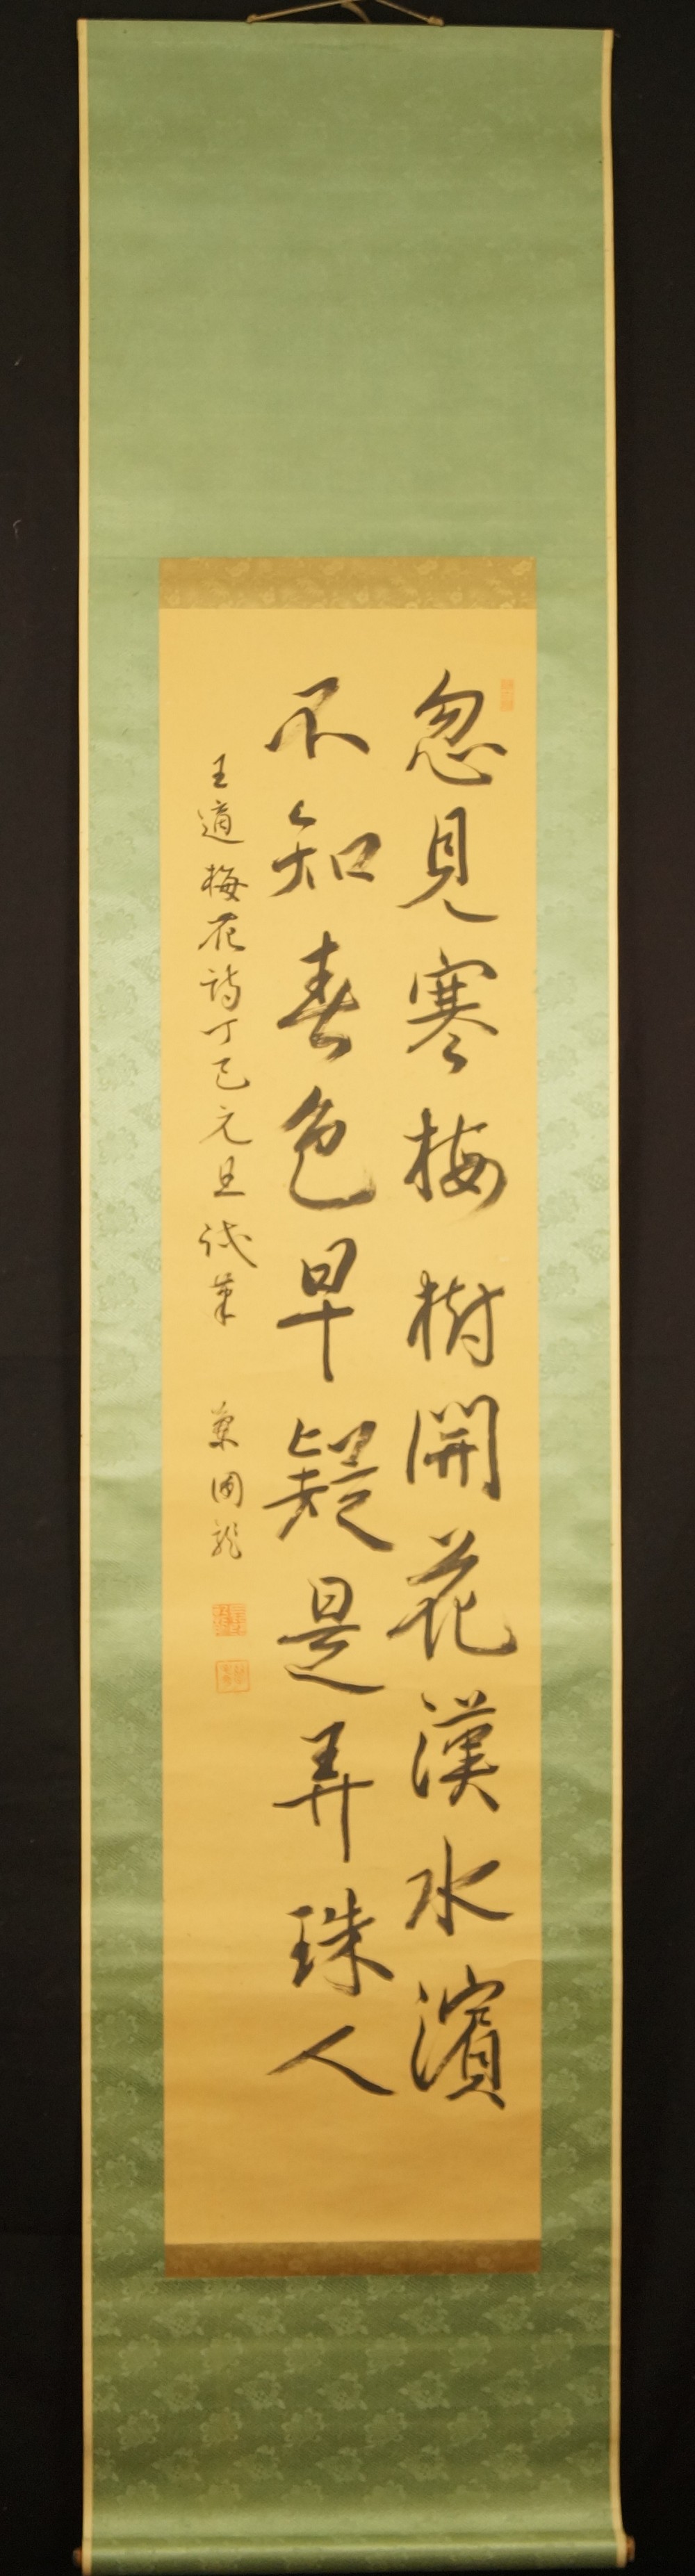 忽見寒梅樹開花漢水濱
不知春色早疑是弄珠人
王適梅花詩丁巳元旦試筆